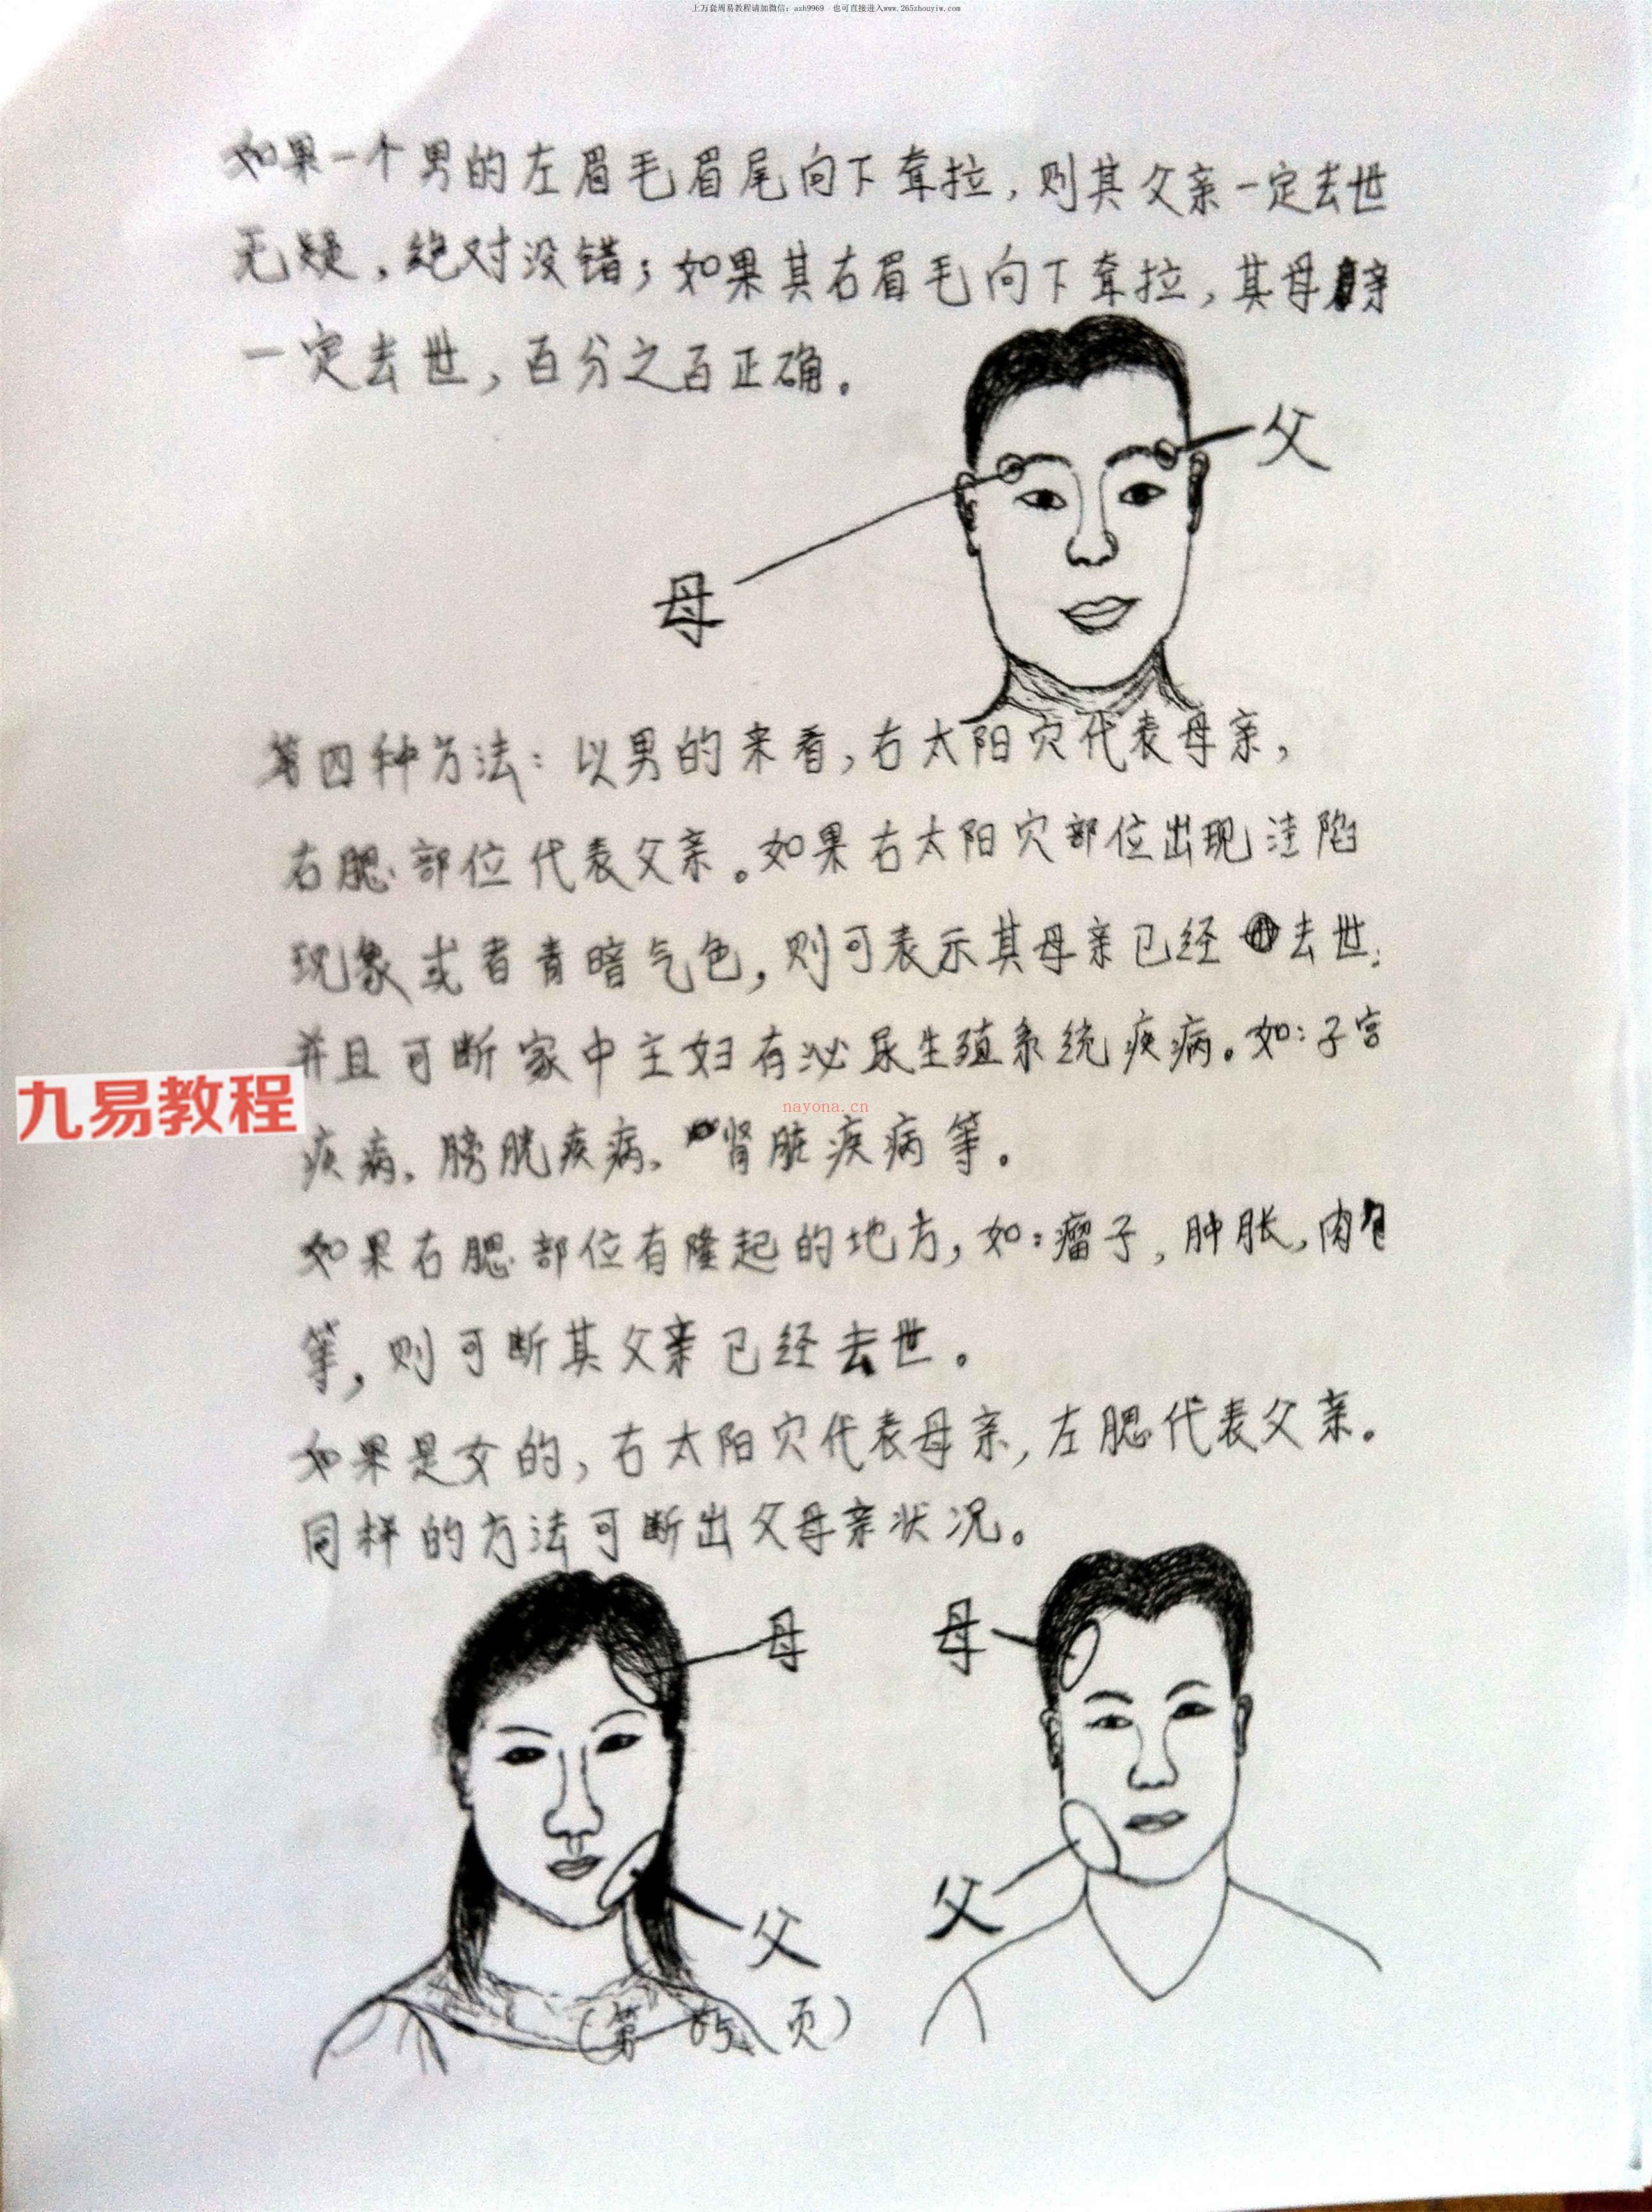 上万套周易教程请加微信：azh9969 也可直接进入www.265zhouyiw.com
如果一个男的左眉毛眉尾向下耷拉，则其父亲一定去世
无疑，绝对没错；如果其右眉毛向下耷拉，其母亲
一定去世，百分之百正确。
父
母
第四种方法：以男的来看，右太阳穴代表母亲，
右腮部位代表父亲。如果右太阳穴部位出现洼陷
现象或者青暗气色，则可表示其母亲已经去世；
并且可断家中主妇有泌尿生殖系统疾病。如：子宫
九易教程
nayona.cn
疾病、膀胱疾病、肾脏疾病等。
如果右腮部位有隆起的地方，如：瘤子，肿胀，肉包
等，则可断其父亲已经去世。
如果是女的，右太阳穴代表母亲，左腮代表父亲。
同样的方法可断出父母亲状况。
母
母
父
父
(第 85 页)